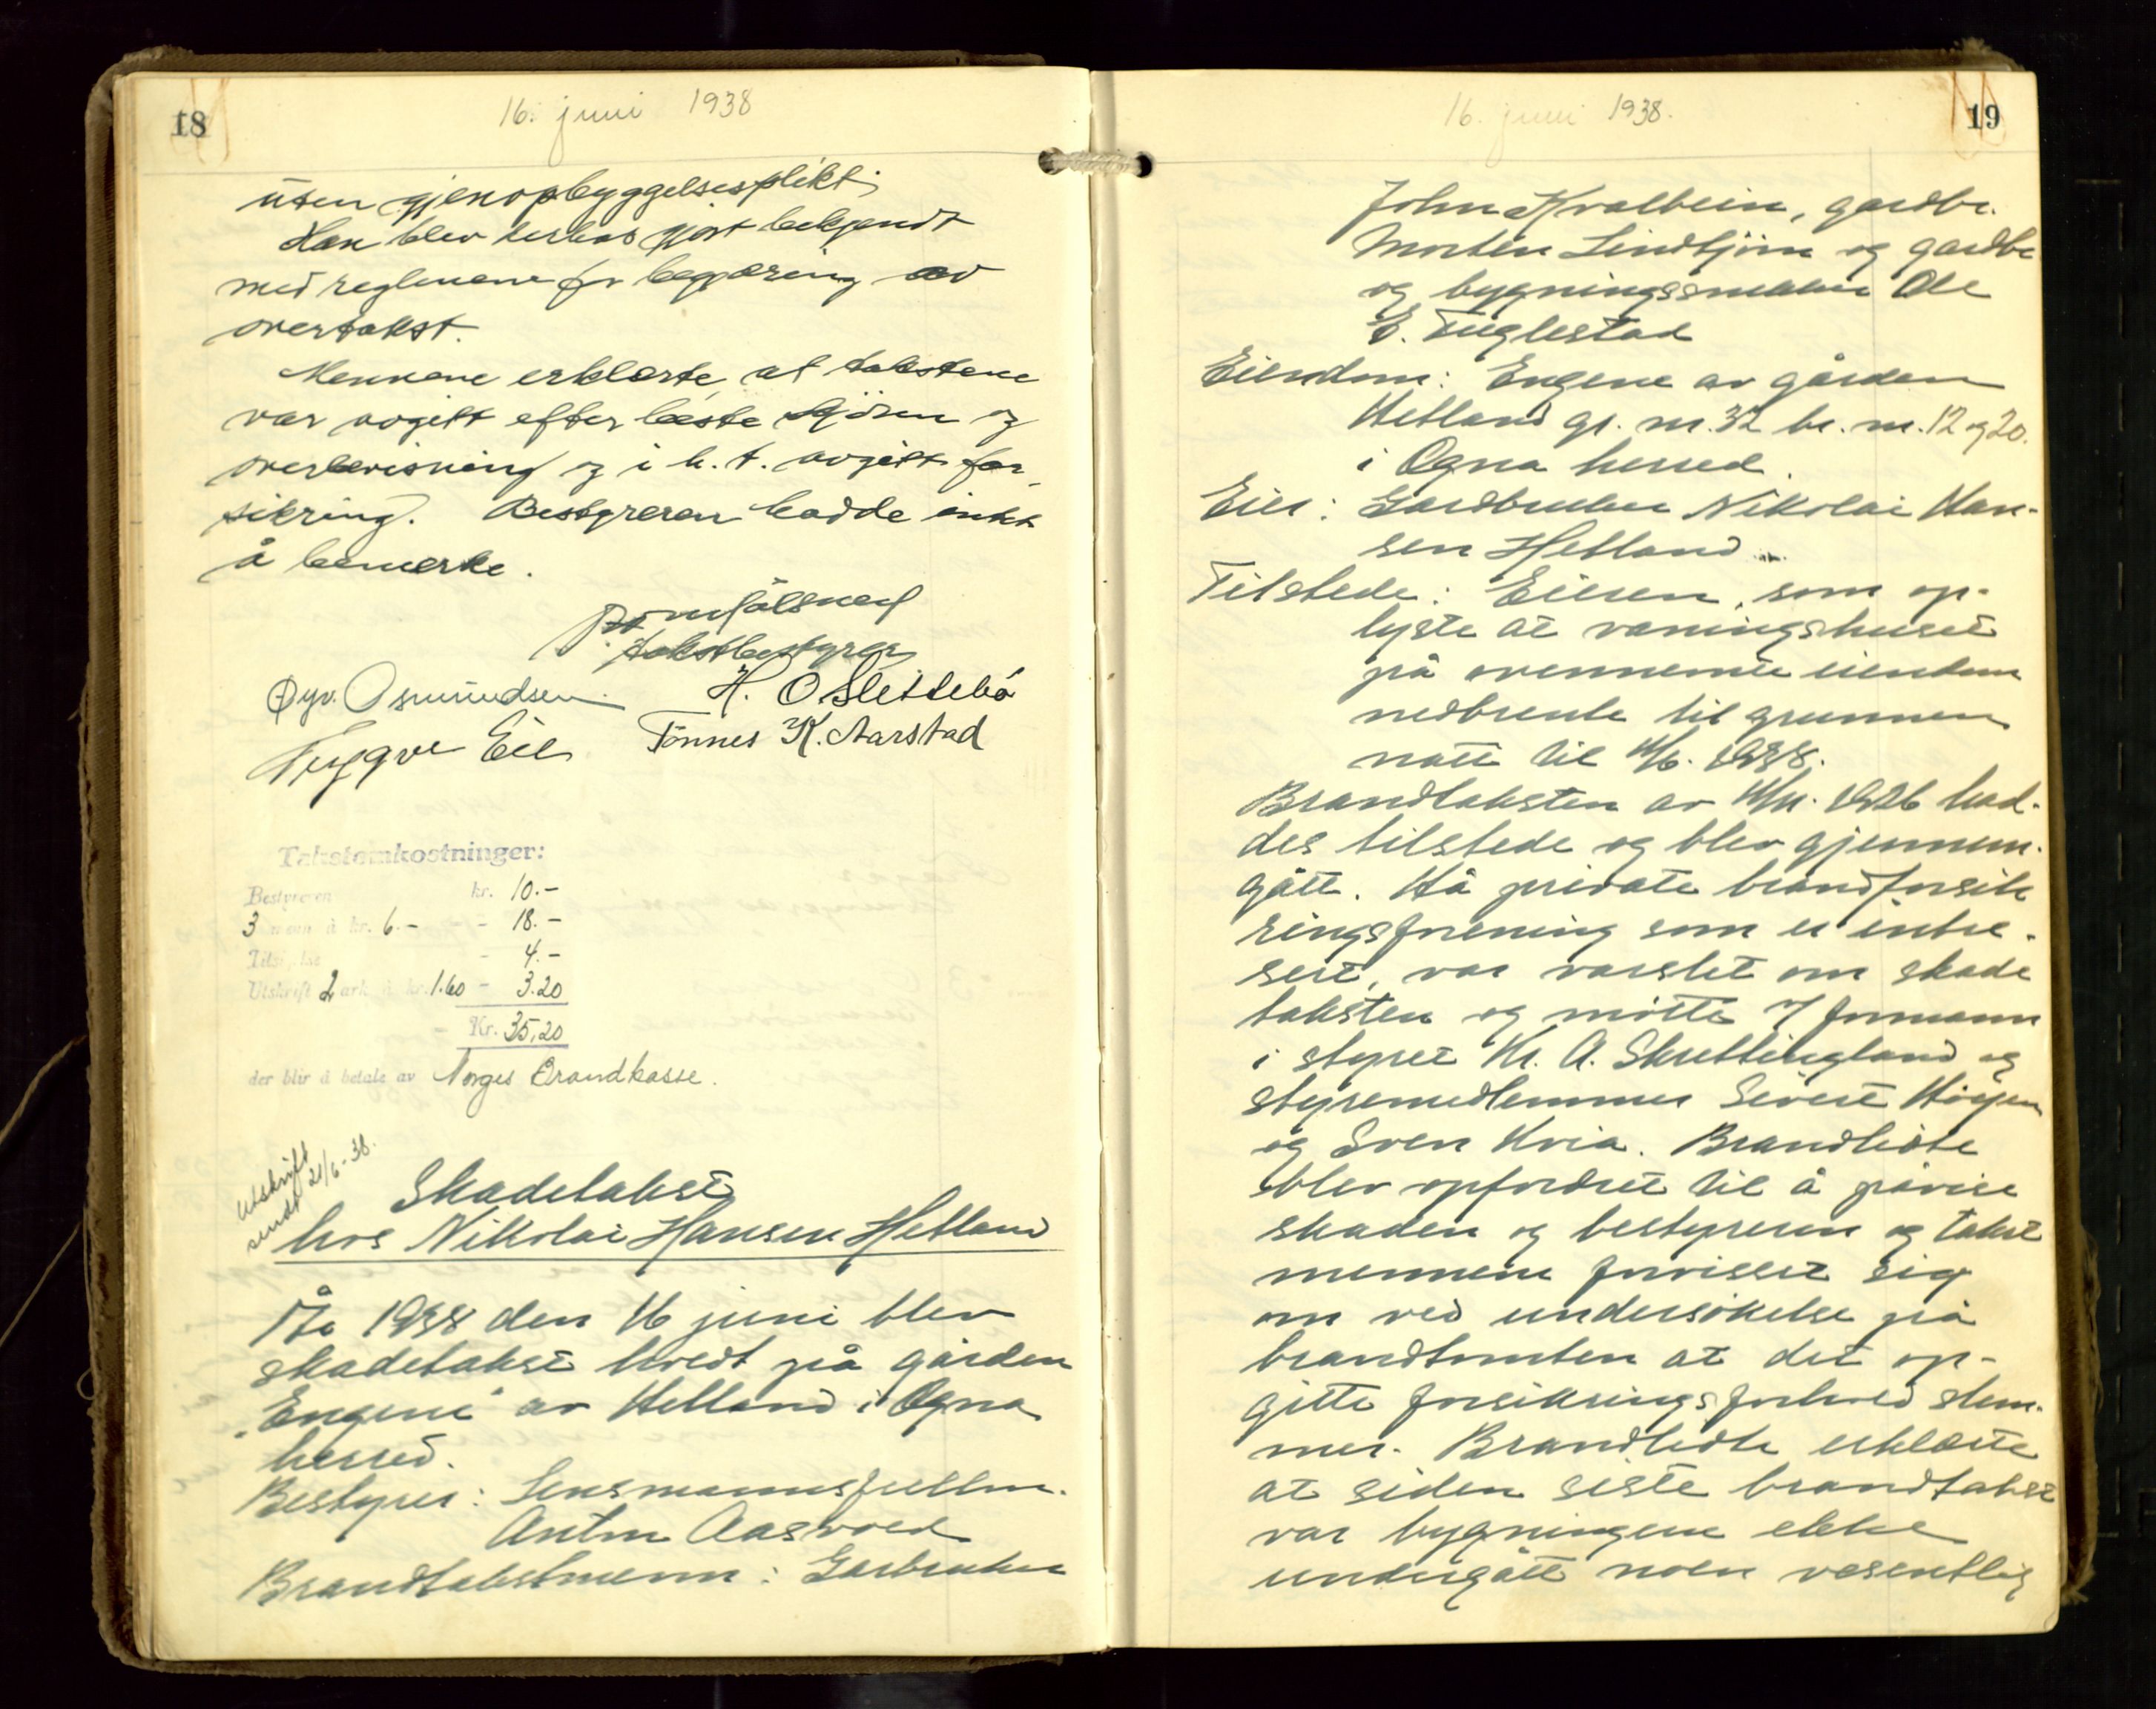 18
16. juni 1938
uten gjenopbyggelsesplikt.
Han blev derhos gjort bekjendt
med reglene for begjæring av
overtakst.
Mennene erklærte, at takstene
var avgitt efter beste skjönn og
overbevisning og i h. t. avgitt for-
sikring. Bestyreren hadde intet
å bemerke.
takstbestyrer
Øyv. Asmundsen. H. O. Slettebö
Trygve Eie Tönnes K. Aarstad
Takstomkostninger:
Bestyreren kr. 10.-
3 menn à kr. 6.- - 18.-
- 4.-
Utskrift 2 ark à kr. 1.60 - 3.20
Kr. 35,20
der blir å betale av Norges Brandkasse.
Utskrift
sendt 21/6-38.
Skadetakst
hos Nikolai Hansen Hetland
År 1938 den 16 juni blev
skadetakst holdt på gården
"Engene" av Hetland i Ogna
herred.
Bestyrer: Lensmannsfullm.
Anton Aasvold
Brandtakstmenn: Garbruker
19
16. juni 1938.
John Kvalbein, gardbr.
Morten Lindtjörn og gardbr
og bygningssnekker Ole
E. Fuglestad
Eiendom: Engene av gården
Hetland gr. nr. 32 br. nr. 12 og 20.
i Ogna herred.
Eier: Gardbruker Nikolai Han-
sen Hetland
Tilstede: Eieren, som op-
lyste at vaningshuset
på ovennemte eiendom
nedbrente til grunnen
natt til 11/6. 1938.
Brandtaksten av 1926 had-
des tilstede og blev gjennem-
gått. Hå private brandforsik
ringsforening som er intre-
sert, var varslet om skade
taksten og møtte v/ formann
i styret Kr. A. Skretlingland og
styremedlemmer Sivert Höyen
og Sven Kvia. Brandlidte
blev opfordret til å påvise
skaden og bestyreren og takst
mennene forvisset sig
om ved undersökelse på
brandtomten at det op-
gitte forsikringsforhold stem-
mer. Brandlidte erklærte
at siden siste brandtakst
var bygningene ikke
undergått noen vesentlig